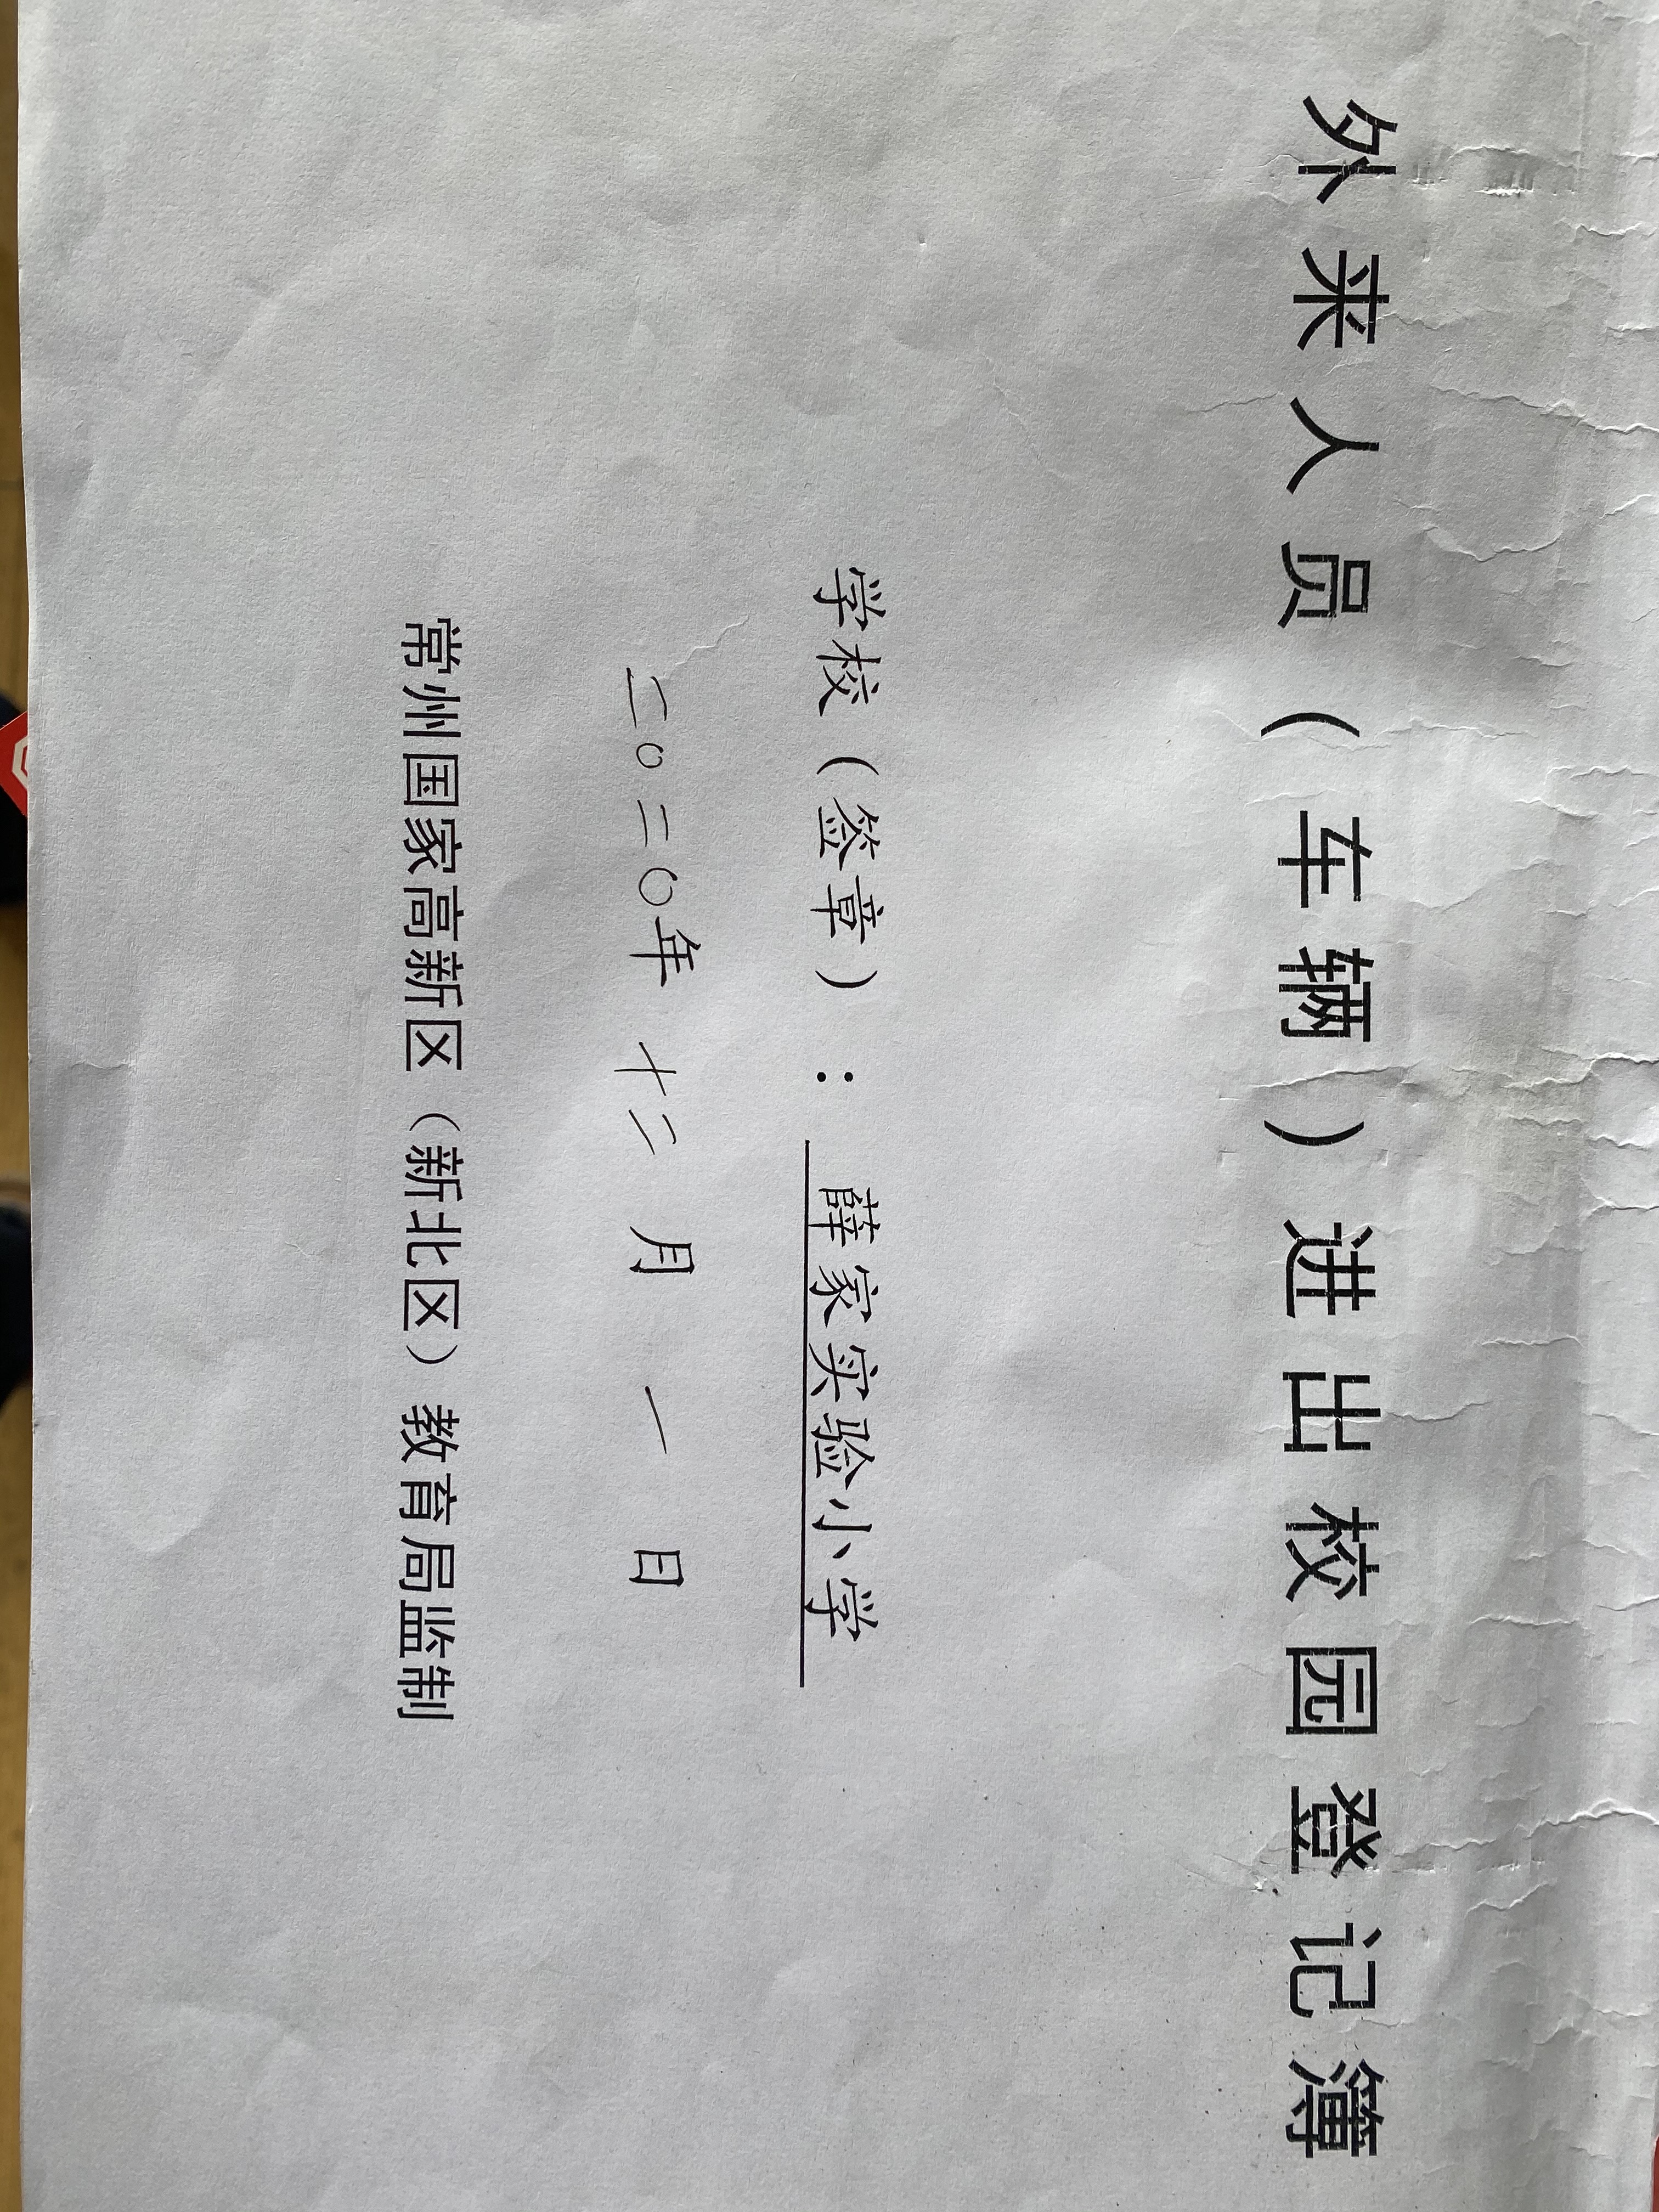 外来人员（车辆）进出校园登记簿
学校（签章）：薛家实验小学
二〇二〇年 十二 月 一 日
常州国家高新区（新北区）教育局监制